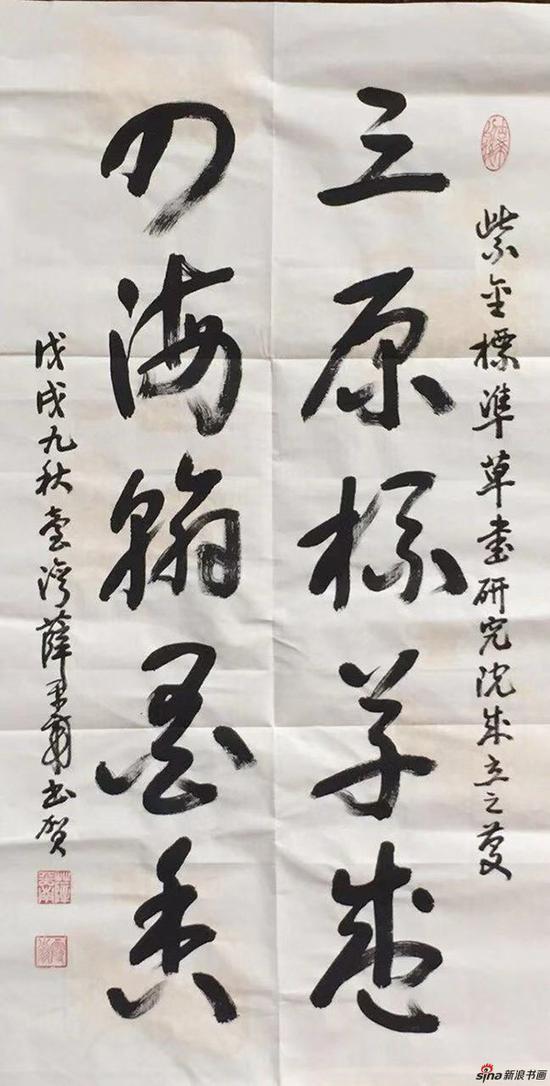 紫金標準草書研究院成立之慶
三原標草盛
四海翰墨香
戊戌九秋臺灣薛書賀
sina新浪书画